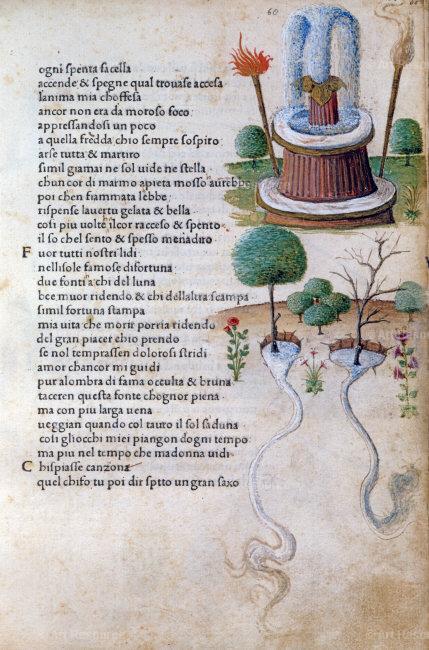 60
ogni spenta facella
accende & spegne qual trouasse accesa
lanima mia choffesa
ancor non era damoroso foco
appressandosi un poco
a quella fredda chio sempre sospiro
arse tutta & martiro
simil giamai ne sol uide ne stella
chun cor di marmo apieta mosso aurebbe
poi chen fiammata lebbe
rispense lauertu gelata & bella
cosi piu uolte il cor racceso & spento
il so chel sento & spesso menadiro
F uor tutti nostri lidi
nellisole famose difortuna
due fonti a chi del luna
bee muor ridendo & chi dellaltra scampa
simil fortuna stampa
mia uita che morir porria ridendo
del gran piacer chio prendo
se nol temprassen dolorosi stridi
amor chancor mi guidi
pur alombra di fama occulta & bruna
taceren questa fonte chognor piena
ma con piu larga uena
ueggian quando col tauro il sol saduna
cosi gliocchi miei piangon dogni tempo
ma piu nel tempo che madonna uidi
C hi spiasse canzona
quel chifo tu poi dir sotto un gran saxo